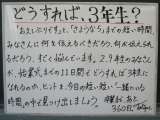 どうすれば、3年生?
「おはようございます」と、「さようなら」までの短い時間
みなさんに何を伝えるべきだろう。何が伝えられ
るだろう。すごく悩んでいます。2、9年生のみなさん
が、始業式までの11日間でどうすれば3年生に
なれるのか、ヒントを、今日の短い短い一緒にいる
時間の中で見つけ出しましょう。 あと
360日